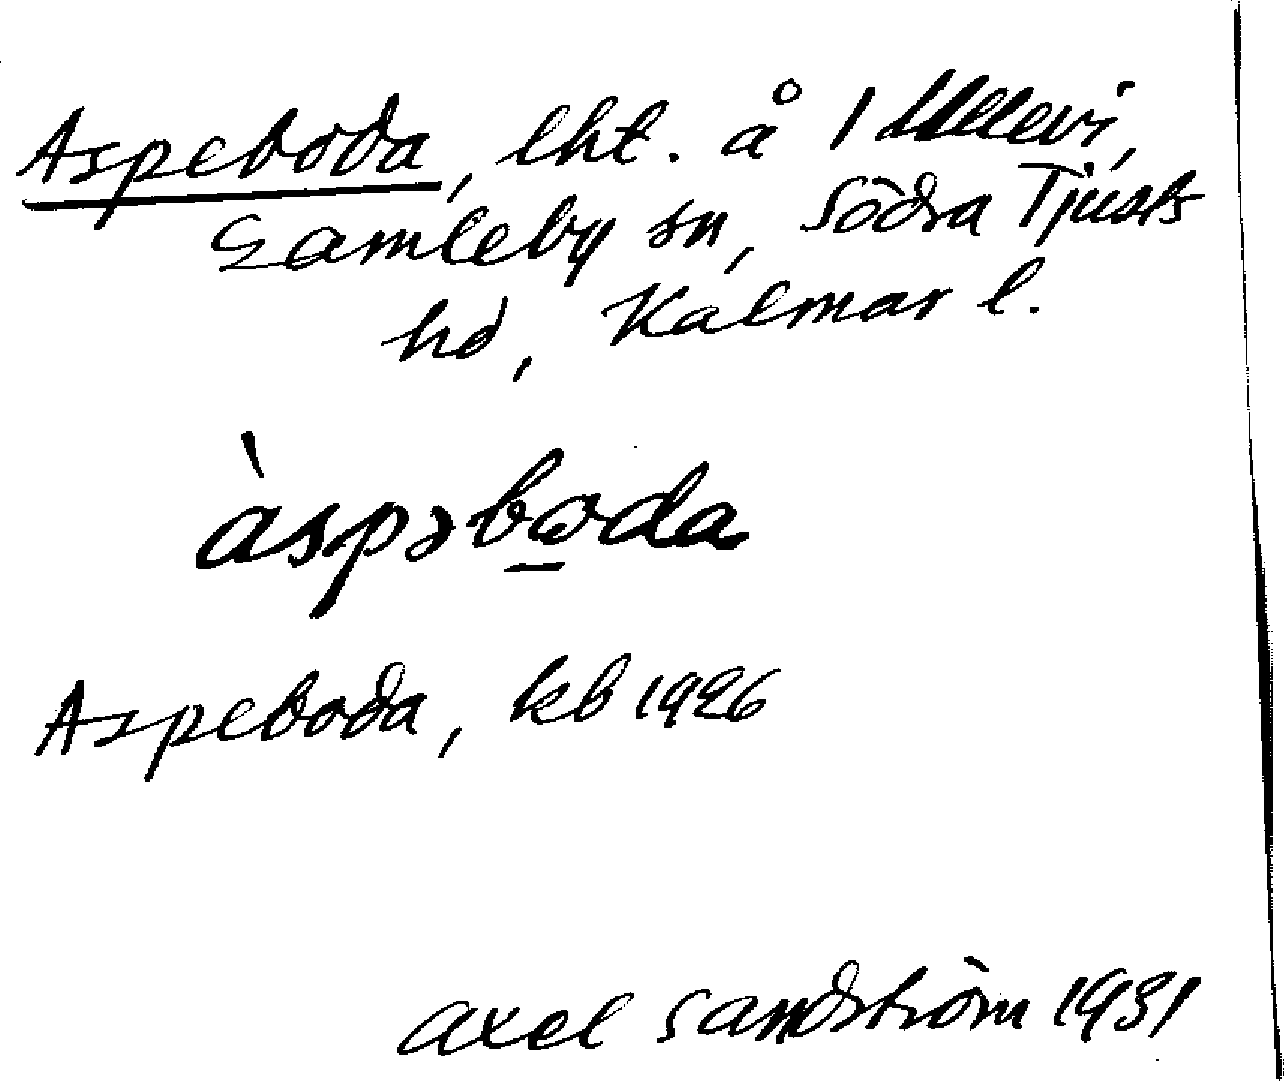 Aspeboda, lht. å 1 Ullevi,
Gamleby sn, Södra Tjusts
hd, Kalmar l.
àspəboda
Aspeboda, kb 1926
Axel Sandström 1931